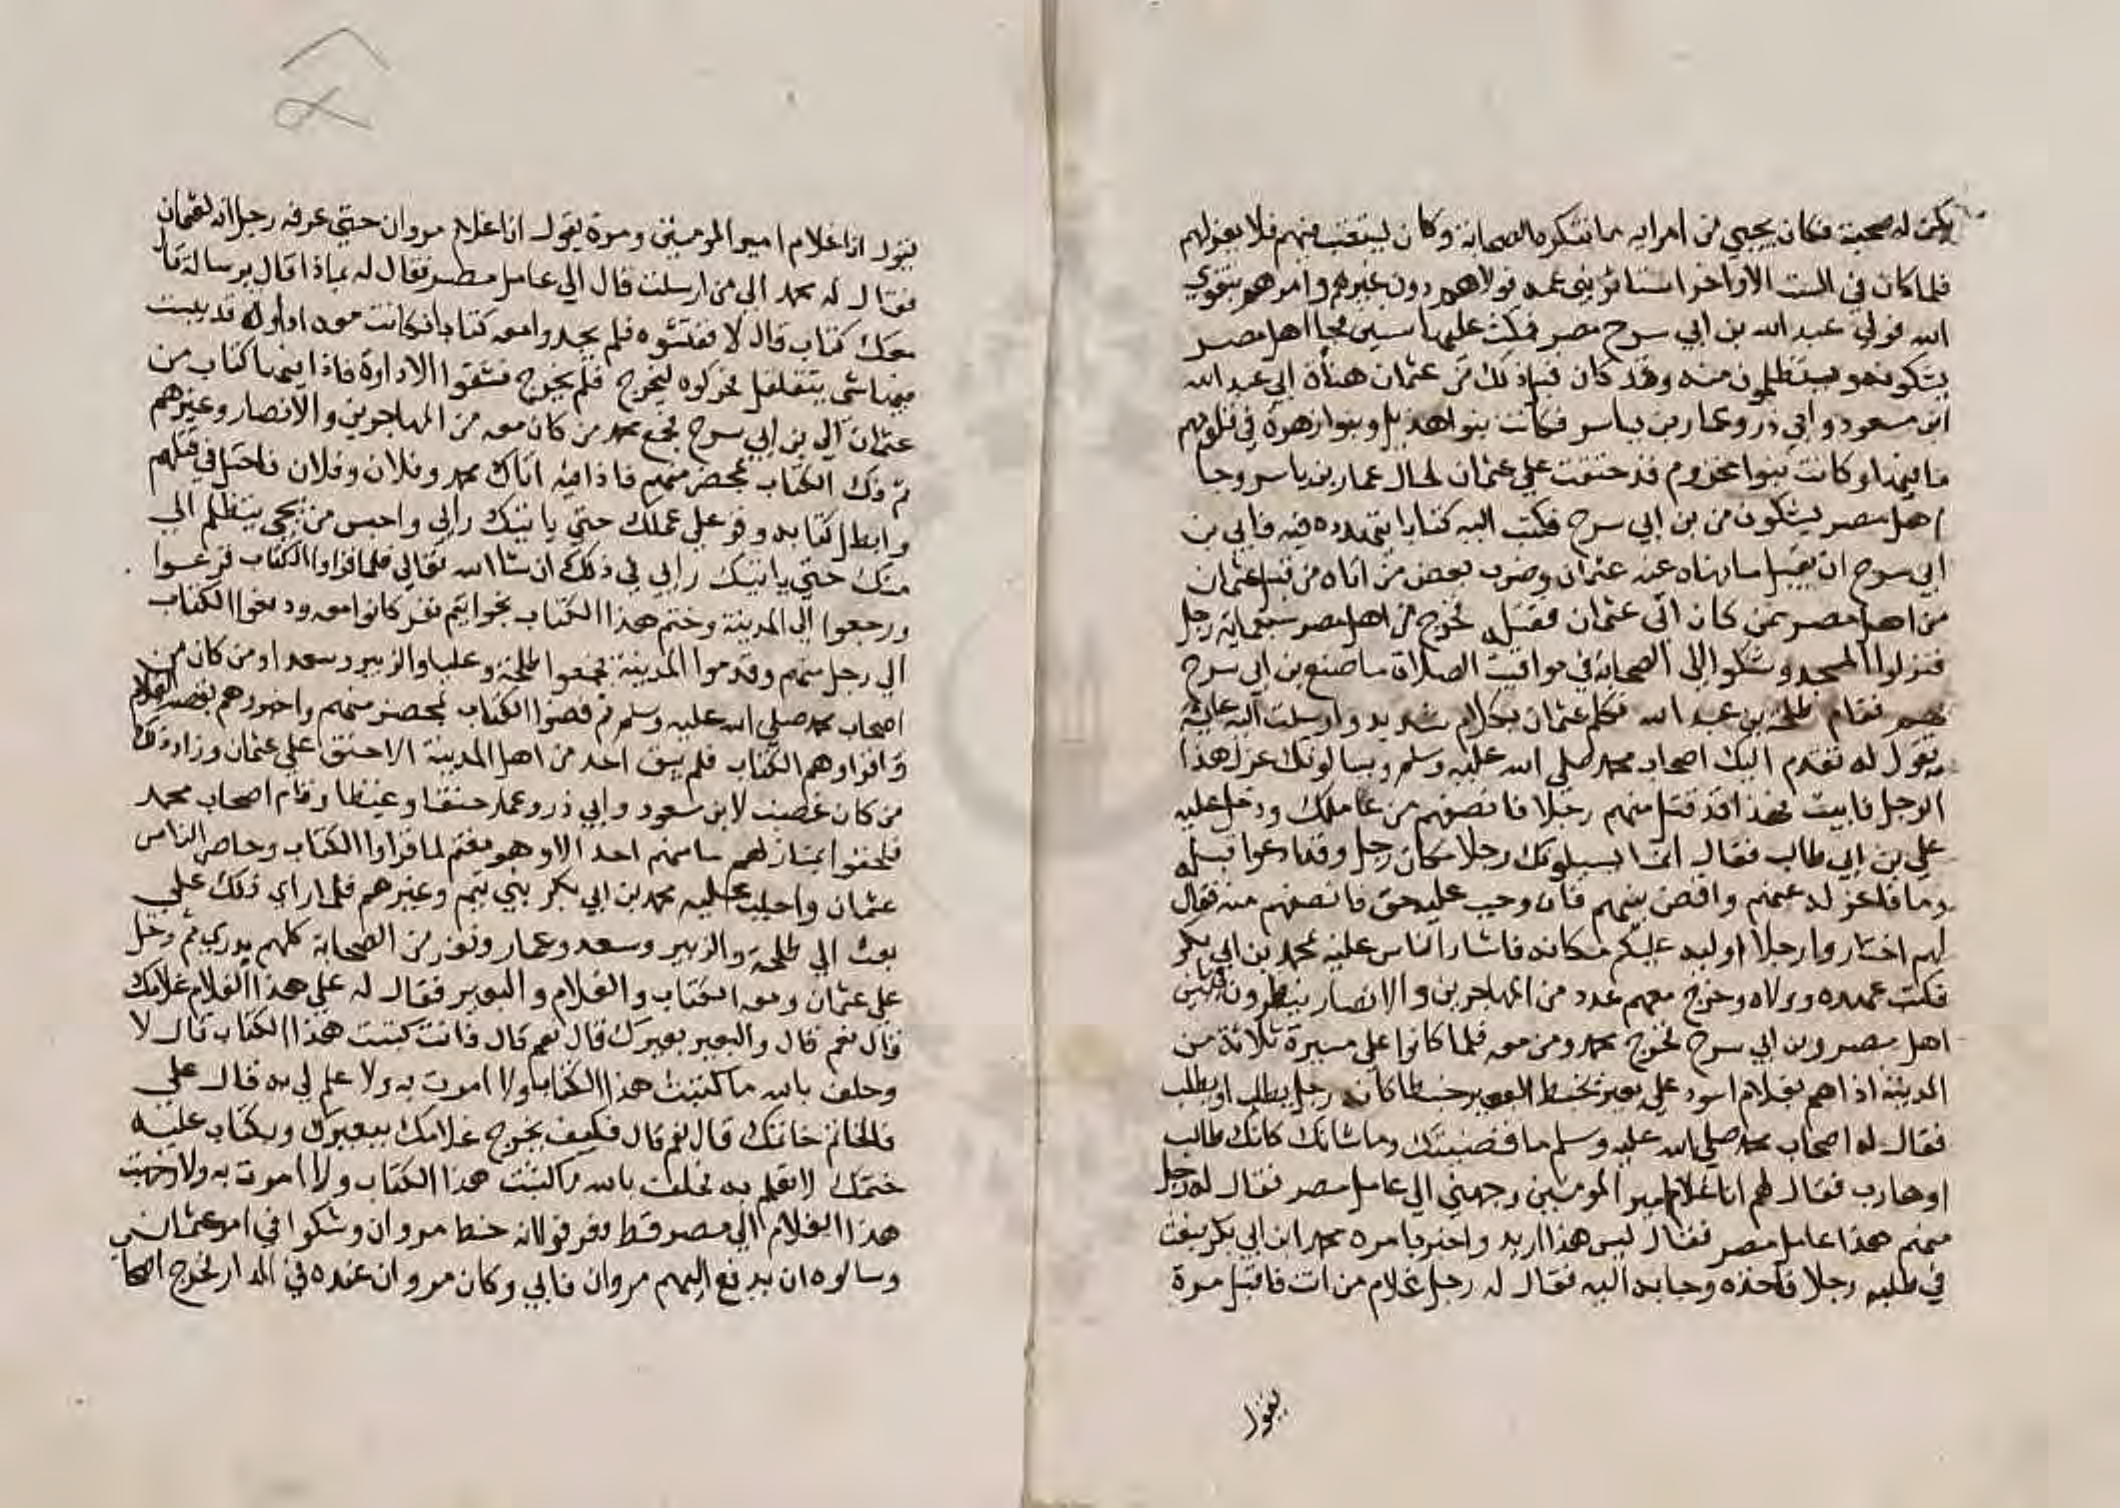 يكن له صحبة فكان يجيي من امرايه ما تنكره الصحابة وكان يستعتب فيهم فلا يعزلهم
فلما كان في الست الاواخر استاثر بني عمه فولاهم دون غيرهم وامرهم بتقوي
الله فولي عبد الله بن ابي سرح مصر فمكث عليها سنين فجا اهل مصر
يشكونه ويتظلمون منه وقد كان قبل ذلك من عثمان هناة الي عبد الله
ابن مسعود وابي ذر وعمار بن ياسر فكانت بنوا هذيل وبنوا زهرة في قلوبهم
ما فيها وكانت بنوا مخزوم قد حنقت علي عثمان لحال عمار بن ياسر وجا
اهل مصر يشكون من بن ابي سرح فكتب اليه كتابا يتهدده فيه فابي بن
ابي سرح ان يقبل ما نهاه عنه عثمان وضرب بعض من اتاه من قبل عثمان
من اهل مصر ممن كان اتي عثمان فقتله فخرج من اهل مصر سبعماية رجل
فنزلوا المسجد وشكوا الي الصحابة في مواقيت الصلاة ما صنع بن ابي سرح
بهم فقام طلحة بن عبد الله فكلم عثمان بكلام شديد وارسلت اليه عايشة
تقول له تقدم اليك اصحاب محمد صلي الله عليه وسلم ويسالونك عزل هذا
الرجل فابيت فهذا قد قتل منهم رجلا فانصفهم من عاملك ودخل عليه
علي بن ابي طالب فقال انما يسيلونك رجلا مكان رجل وقد ادعوا قبله
دما فاعزله عنهم واقض بينهم فان وجب عليه حق فانصفهم منه فقال
لهم اختاروا رجلا اوليه عليكم مكانه فاشار الناس عليه محمد بن ابي بكر
فكتب عهده وولاه وخرج معهم عدد من المهاجرين والانصار ينظرون فيما بين
اهل مصر وبن ابي سرح فخرج محمد ومن معه فلما كانوا علي مسيرة ثلاثة من
المدينة اذا هم بغلام اسود علي بعير يخبط البعير خبطا كانه رجل يطلب او يطلب
فقال له اصحاب محمد صلي الله عليه وسلم ما قضيتك وما شانك كانك طالب
او هارب فقال لهم انا غلام امير المومنين وجهني الي عامل مصر فقال له رجل
منهم هذا عامل مصر فقال ليس هذا اريد واخبر بامره محمد ابن ابي بكر فبعث
في طلبه رجلا فاخذه وجا به اليه فقال له رجل غلام من انت فاقبل مرة
يقول
يقول انا غلام امير المومنين ومرة يقول انا غلام مروان حتي عرفه رجل انه لعثمان
فقال له محمد الي من ارسلت قال الي عامل مصر فقال له بماذا قال برسالة قال
معك كتاب قال لا ففتشوه فلم يجدوا معه كتابا فكانت معه اداوة قد يبست
فيها شي يتقلقل فحركوه ليخرج فلم يخرج فشقوا الاداوة فاذا فيها كتاب من
عثمان الي بن ابي سرح فجمع محمد من كان معه من المهاجرين والانصار وغيرهم
ثم فك الكتاب بمحضر منهم فاذا فيه اذا اتاك محمد وفلان وفلان فاحتل في قتلهم
وابطل كتابه وقر علي عملك حتي ياتيك رايي واحبس من يجي يتظلم الي
منك حتي ياتيك رايي في ذلك ان شا الله تعالي فلما قراوا الكتاب فزعوا
ورجعوا الي المدينة وختم هذا الكتاب بخواتيم نفر كانوا معه ودفعوا الكتاب
الي رجل منهم وقدموا المدينة فجمعوا طلحة وعليا والزبير وسعدا ومن كان من
اصحاب محمد صلي الله عليه وسلم ثم فضوا الكتاب بمحضر منهم واخبروهم بقصة الغلام
واقراوهم الكتاب فلم يبق احد من اهل المدينة الا حنق علي عثمان وزاد ذلك
من كان غضب لابن مسعود وابي ذر وعمار حنقا وغيظا وقام اصحاب محمد
فلحقوا بمنازلهم ما منهم احد الا وهو مغتم لما قراوا الكتاب وحاصر الناس
عثمان واجلب عليه محمد بن ابي بكر ببني تيم وغيرهم فلما راي ذلك علي
بعث الي طلحة والزبير وسعد وعمار ونفر من الصحابة كلهم بدري ثم دخل
علي عثمان ومعه الكتاب والغلام والبعير فقال له علي هذا الغلام غلامك
قال نعم قال والبعير بعيرك قال نعم قال فانت كتبت هذا الكتاب قال لا
وحلف بالله ما كتبت هذا الكتاب ولا امرت به ولا علم لي به قال علي
فالخاتم خاتمك قال نعم قال فكيف يخرج غلامك ببعيرك وبكتاب عليه
ختمك لا تعلم به فحلف بالله ما كتبت هذا الكتاب ولا امرت به ولا وجهت
هذا الغلام الي مصر قط فعرفوا انه خط مروان وشكوا في امر عثمان
وسالوه ان يدفع اليهم مروان فابي وكان مروان عنده في الدار فخرج اصحاب